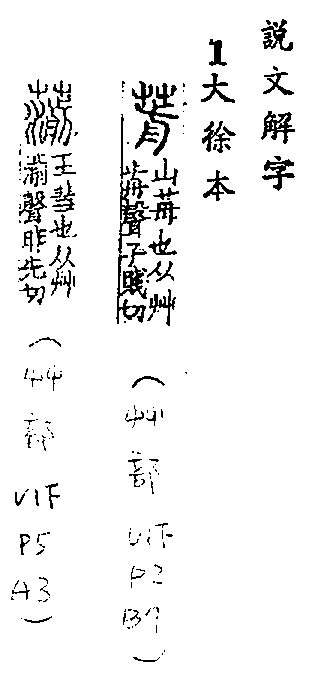 説文解字
1大徐本
山莓也从艸
聲子賤切
(艸部 V1F P2 B9)
王彗也从艸
湔聲昨先切
(艸部 V1F P5 A3)